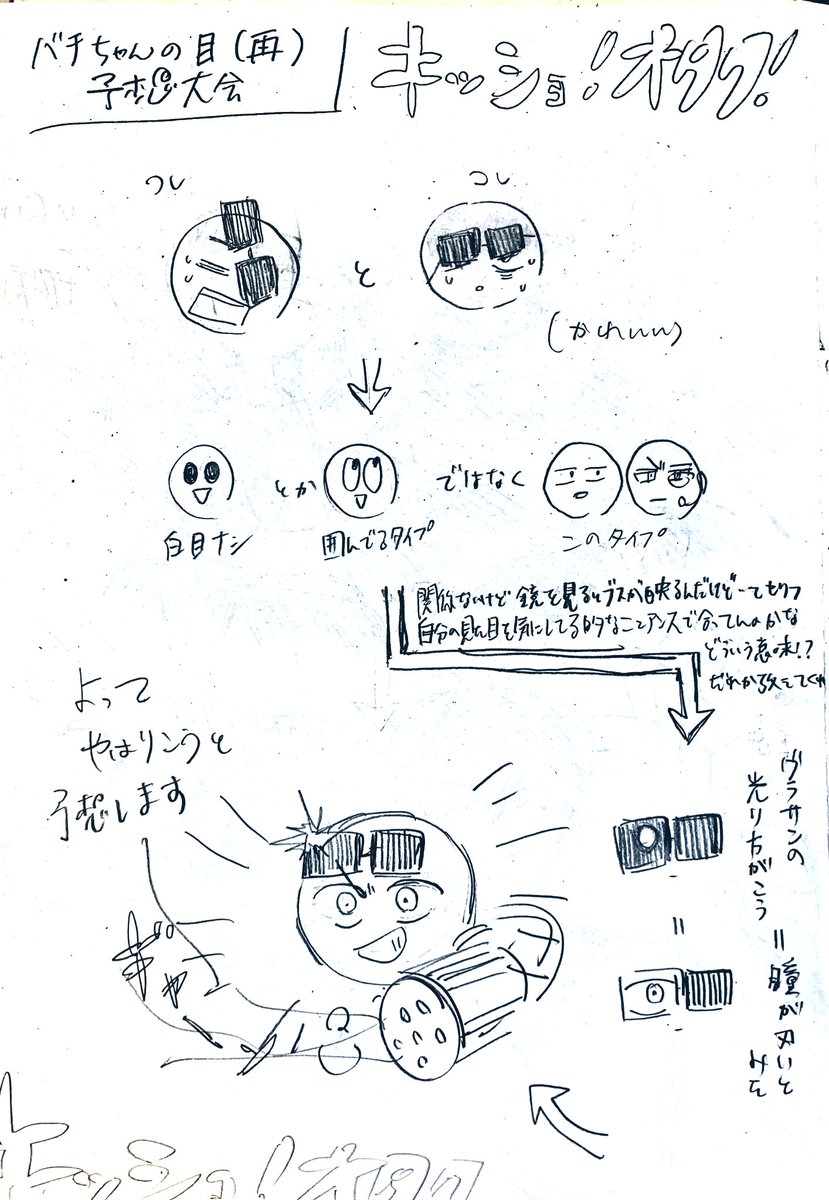 バチちゃんの目(再)
予想大会
キッショ!オタク!
コレ
と
コレ
(かわいい)
白目ナシ
とか
囲んでるタイプ
ではなく
このタイプ
関係ないけど鏡を見るとブスが映るんだけどーてセリフ
自分の見た目を気にしてる的なニュアンスで合ってんのかな
どういう意味!?
だれか教えてくれ
よって
やはりこうと
予想します
グラサンの
光り方がこう
=瞳が丸いと
みた
キッショ!オタク